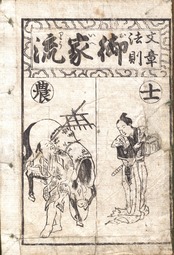 文章
法則
御家流
士
農